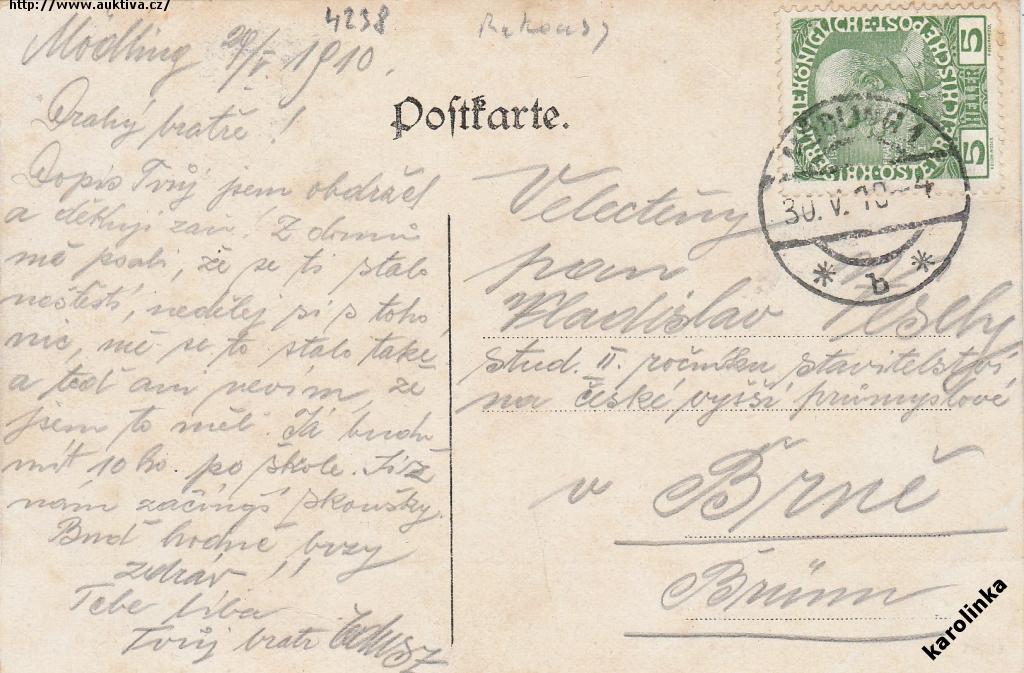 http://www.auktiva.cz/
4238
Rakousy
Mödling 29/V 1910.
Drahý bratře!
Dopis Tvůj jsem obdržel
a děkuji zaň. Z domu
mě psali, že se ti stalo
neštěstí, nedělej si s toho
nic, mě se to stalo také,
a teď ani nevím, že
jsem to měl. Já budu
mít 10ho. po škole. Již
nám začínají skoušky.
Buď hodně brzy
zdráv!!
Tebe líbá
Tvůj bratr
Postkarte.
KAISERLICHE KÖNIGLICHE ÖSTERREICHISCHE POST
5
HELLER
5
MÖDLING 1
30. V. 10-4
* b *
Velectěný
pan
Vladislav Veselý
stud. II. ročníku stavitelství
na české vyšší průmyslové
v Brně
Brünn
karolinka